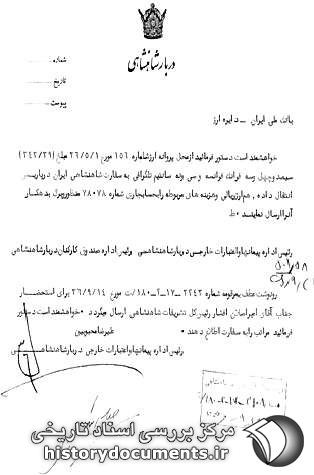 دربار شاهنشاهی
شماره
تاریخ
پیوست
بانک ملی ایران - دایره ارز
خواهشمند است دستور فرمائید از محل پروانه ارز شماره ۱۵۶ مورخ ۲۶/۵/۱ مبلغ (۳۴۳/۲۹)
سیصد و چهل و سه فرانک فرانسه و سی و نه سانتیم تلگرافی به سفارت شاهنشاهی ایران در پاریس
انتقال داده، هم ارز ریالی و هزینه های مربوطه را بحساب جاری شماره ۷۸۰۷۸ منظور و برگ بدهکار
آنرا ارسال نمایند
رئیس اداره پیمانها و اعتبارات خارجی دربار شاهنشاهی رئیس اداره صندوق کارکنان دربار شاهنشاهی
رونوشت عطف بمرقومه شماره ۲۴۴۲-۱۷-۲-۱۸۰ ت مورخ ۲۶/۹/۱۴ برای استحضار
جناب آقای امیراصلان افشار رئیس کل تشریفات شاهنشاهی ارسال میگردد خواهشمند است دستور
فرمائید مراتب را به سفارت اطلاع دهند علیرضا محبوبین
رئیس اداره پیمانها و اعتبارات خارجی دربار شاهنشاهی
مرکز بررسی اسناد تاریخی
historydocuments.ir